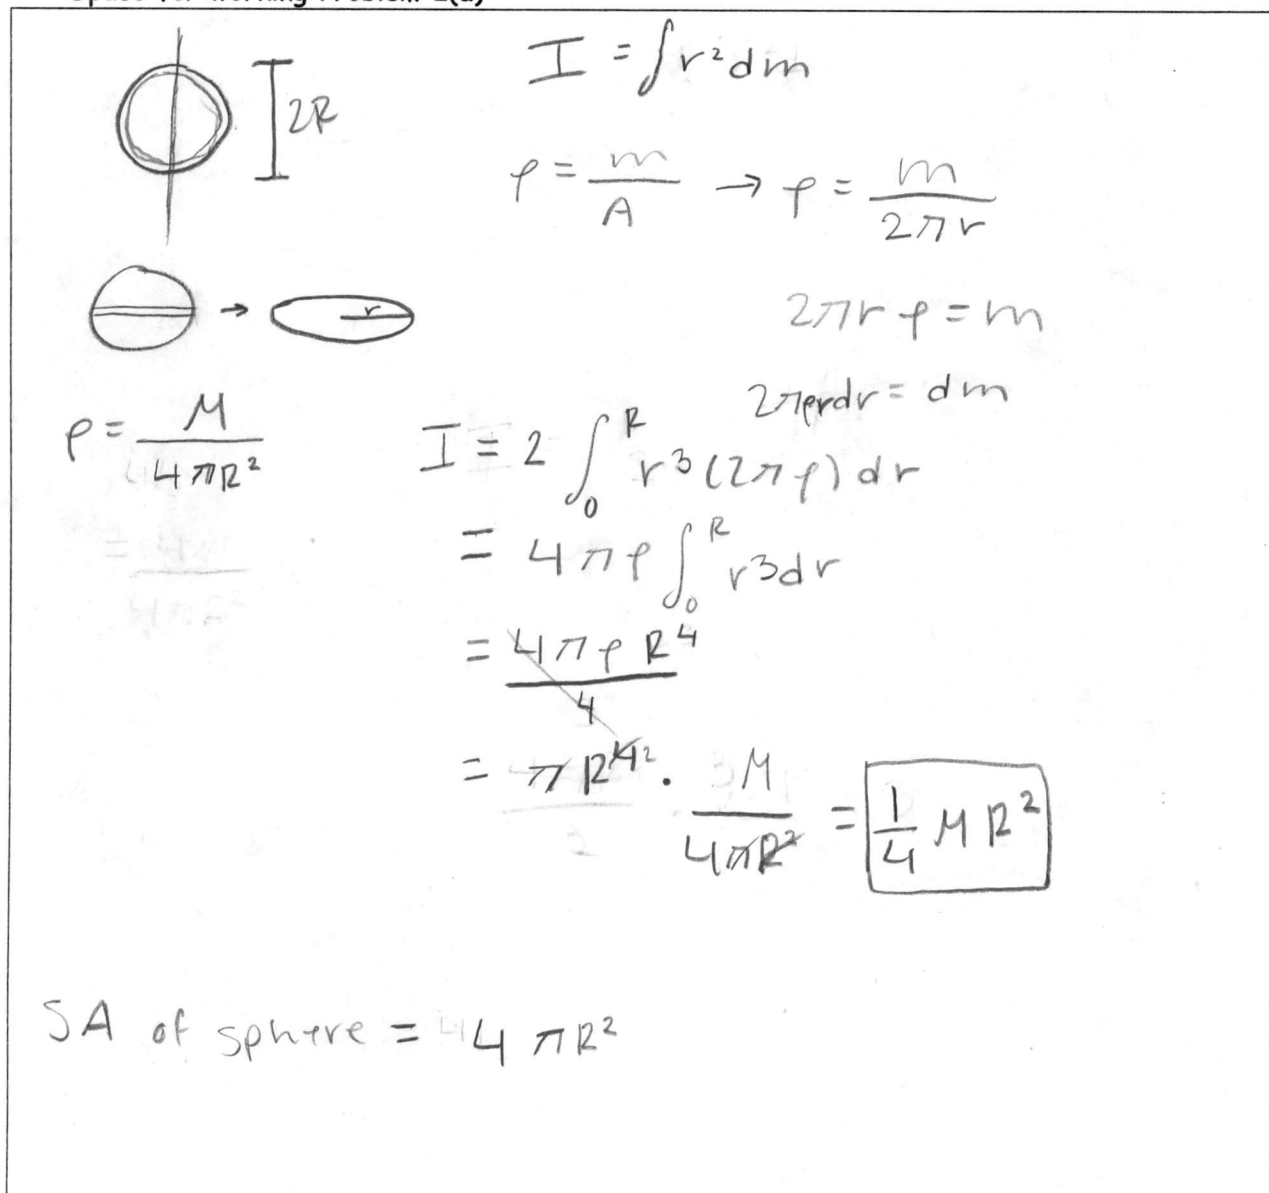 I = ∫r²dm
2R
ρ = m/A → ρ = m/2πr
r
2πrρ = m
2πρrdr = dm
ρ = M/4πR²
I = 2 ∫₀ᴿ r³(2πρ)dr
= 4πρ ∫₀ᴿ r³dr
= 4πρR⁴/4
= πR⁴² · M/4πR² = 1/4 MR²
SA of sphere = 4πR²